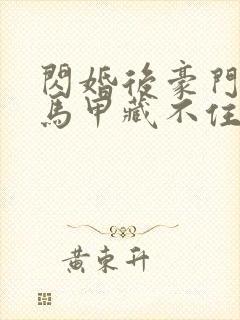 閃婚後豪門
馬甲藏不住
黃東升